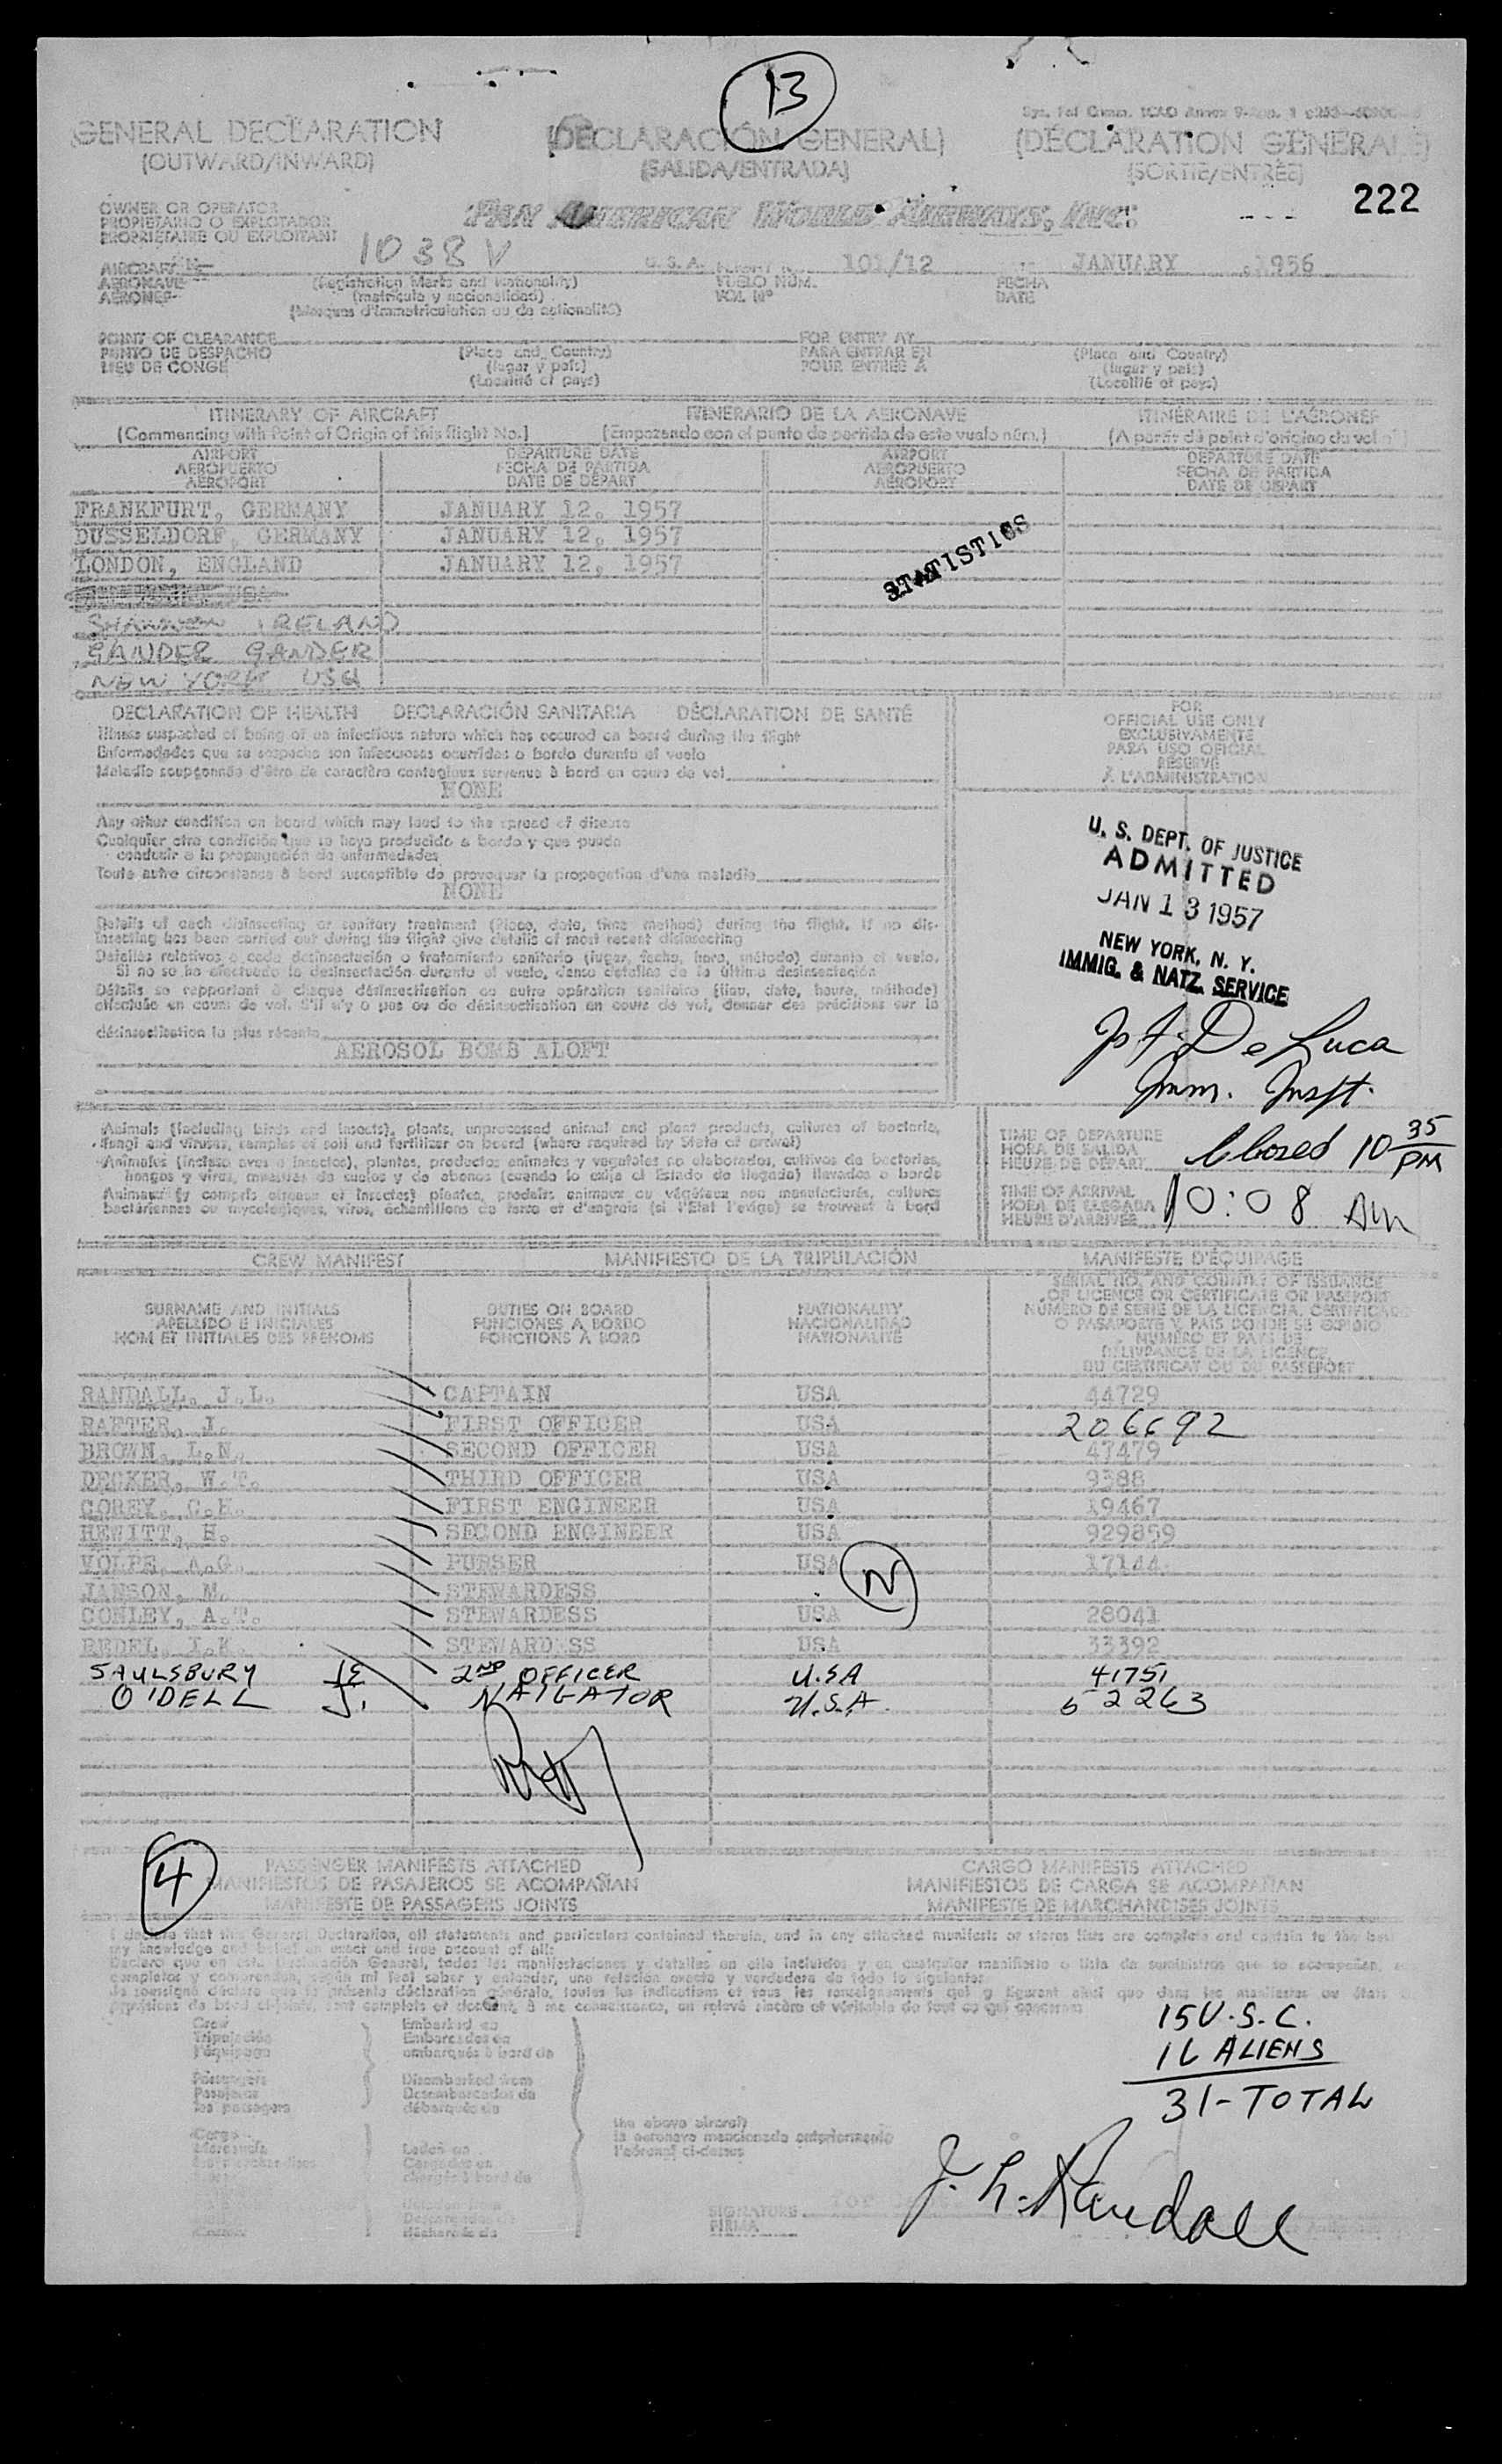 13
Syn. Fal Comm. ICAO Annex 9-App. 1
GENERAL DECLARATION (DECLARACIÓN GENERAL) (DÉCLARATION GÉNÉRALE)
(OUTWARD/INWARD) (SALIDA/ENTRADA) (SORTIE/ENTRÉE)
222
OWNER OR OPERATOR
PROPIETARIO O EXPLOTADOR
PROPRIÉTAIRE OU EXPLOITANT
PAN AMERICAN WORLD AIRWAYS, INC.
AIRCRAFT 1038 V U.S.A. 101/12 JANUARY 1956
AERONAVE (Registration Marks and Nationality) VUELO NUM. FECHA
AÉRONEF (matrícula y nacionalidad) VOL Nº DATE
(Marques d'immatriculation ou de nationalité)
POINT OF CLEARANCE FOR ENTRY AT
PUNTO DE DESPACHO (Place and Country) PARA ENTRAR EN (Place and Country)
LIEU DE CONGÉ (lugar y país) POUR ENTRÉE À (lugar y país)
(Localité et pays) (Localité et pays)
ITINERARY OF AIRCRAFT ITINERARIO DE LA AERONAVE ITINÉRAIRE DE L'AÉRONEF
(Commencing with Point of Origin of this flight No.) (Empezando con el punto de partida de este vuelo núm.) (A partir du point d'origine du vol nº)
AIRPORT DEPARTURE DATE AIRPORT DEPARTURE DATE
AEROPUERTO FECHA DE PARTIDA AEROPUERTO FECHA DE PARTIDA
AÉROPORT DATE DE DÉPART AÉROPORT DATE DE DÉPART
FRANKFURT, GERMANY JANUARY 12, 1957
DUSSELDORF, GERMANY JANUARY 12, 1957
LONDON, ENGLAND JANUARY 12, 1957
STATISTICS
SHANNON IRELAND
GANDER GANDER
NEW YORK USA
DECLARATION OF HEALTH DECLARACIÓN SANITARIA DÉCLARATION DE SANTÉ
Illness suspected of being of an infectious nature which has occured on board during the flight
Enfermedades que se sospecha son infecciosas ocurridas a bordo durante el vuelo
Maladie soupçonnée d'être de caractère contagieux survenue à bord en cours de vol
NONE
Any other condition on board which may lead to the spread of disease
Cualquier otra condición que se haya producido a bordo y que pueda
conducir a la propagación de enfermedades
Toute autre circonstance à bord susceptible de provoquer la propagation d'une maladie
NONE
Details of each disinsecting or sanitary treatment (Place, date, time method) during the flight. If no dis-
insecting has been carried out during the flight give details of most recent disinsecting
Detalles relativos a cada desinsectación o tratamiento sanitario (lugar, fecha, hora, método) durante el vuelo.
Si no se ha efectuado la desinsectación durante el vuelo, dense detalles de la última desinsectación
Détails se rapportant à chaque désinsectisation ou autre opération sanitaire (lieu, date, heure, méthode)
effectuée en cours de vol. S'il n'y a pas eu de désinsectisation en cours de vol, donner des précisions sur la
désinsectisation la plus récente
AEROSOL BOMB ALOFT
FOR
OFFICIAL USE ONLY
EXCLUSIVAMENTE
PARA USO OFICIAL
RÉSERVÉ
À L'ADMINISTRATION
U. S. DEPT. OF JUSTICE
ADMITTED
JAN 13 1957
NEW YORK, N. Y.
IMMIG. & NATZ. SERVICE
De Luca
Imm. Inspt.
Animals (including birds and insects), plants, unprocessed animal and plant products, cultures of bacteria,
fungi and viruses, samples of soil and fertilizer on board (where required by State of arrival)
Animales (incluso aves e insectos), plantas, productos animales y vegetales no elaborados, cultivos de bacterias,
hongos y virus, muestras de suelos y de abonos (cuando lo exija el Estado de llegada) llevados a bordo
Animaux (y compris oiseaux et insectes) plantes, produits animaux ou végétaux non manufacturés, cultures
bactériennes ou mycologiques, virus, échantillons de terre et d'engrais (si l'Etat l'exige) se trouvant à bord
TIME OF DEPARTURE
HORA DE SALIDA
HEURE DE DÉPART Closed 10 35 PM
TIME OF ARRIVAL
HORA DE LLEGADA
HEURE D'ARRIVÉE 10:08 AM
CREW MANIFEST MANIFIESTO DE LA TRIPULACIÓN MANIFESTE D'ÉQUIPAGE
SURNAME AND INITIALS DUTIES ON BOARD NATIONALITY SERIAL NO. AND COUNTRY OF ISSUANCE OF LICENCE OR CERTIFICATE OR PASSPORT
APELLIDO E INICIALES FUNCIONES A BORDO NACIONALIDAD NÚMERO DE SERIE DE LA LICENCIA, CERTIFICADO O PASAPORTE Y PAÍS DONDE SE EXPIDIÓ
NOM ET INITIALES DES PRÉNOMS FONCTIONS À BORD NATIONALITÉ NUMÉRO ET PAYS DE DÉLIVRANCE DE LA LICENCE DU CERTIFICAT OU DU PASSEPORT
RANDALL, J.L. CAPTAIN USA 44729
RAFTER, J. FIRST OFFICER USA 206692
BROWN, L.N. SECOND OFFICER USA 47479
DECKER, W.T. THIRD OFFICER USA 9388
COREY, C.H. FIRST ENGINEER USA 19467
HEWITT, H. SECOND ENGINEER USA 929859
VOLPE, A.G. PURSER USA 17144
JANSON, M. STEWARDESS N
CONLEY, A.T. STEWARDESS USA 28041
REDEL, I.K. STEWARDESS USA 33392
SAULSBURY JE 2ND OFFICER U.S.A 41751
O'DELL J. NAIGATOR U.S.A. 52263
4
PASSENGER MANIFESTS ATTACHED CARGO MANIFESTS ATTACHED
MANIFIESTOS DE PASAJEROS SE ACOMPAÑAN MANIFIESTOS DE CARGA SE ACOMPAÑAN
MANIFESTE DE PASSAGERS JOINTS MANIFESTE DE MARCHANDISES JOINTS
I declare that this General Declaration, all statements and particulars contained therein, and in any attached manifests or stores lists are complete and contain to the best
my knowledge and belief an exact and true account of all:
Declaro que en esta Declaración General, todas las manifestaciones y detalles en ella incluidos y en cualquier manifiesto o lista de suministros que se acompañan,
completos y comprenden, según mi leal saber y entender, una relación exacta y verdadera de todo lo siguiente:
Crew Embarked on
Tripulación Embarcados en
l'équipage embarqués à bord de
Passengers Disembarked from
Pasajeros Desembarcados de
les passagers débarqués de
the above aircraft
la aeronave mencionada anteriormente
l'aéronef ci-dessus
Cargo Laden on
Cargados en
chargés à bord de
15 U.S.C.
16 ALIENS
31-TOTAL
SIGNATURE
FIRMA
J. L. Randall